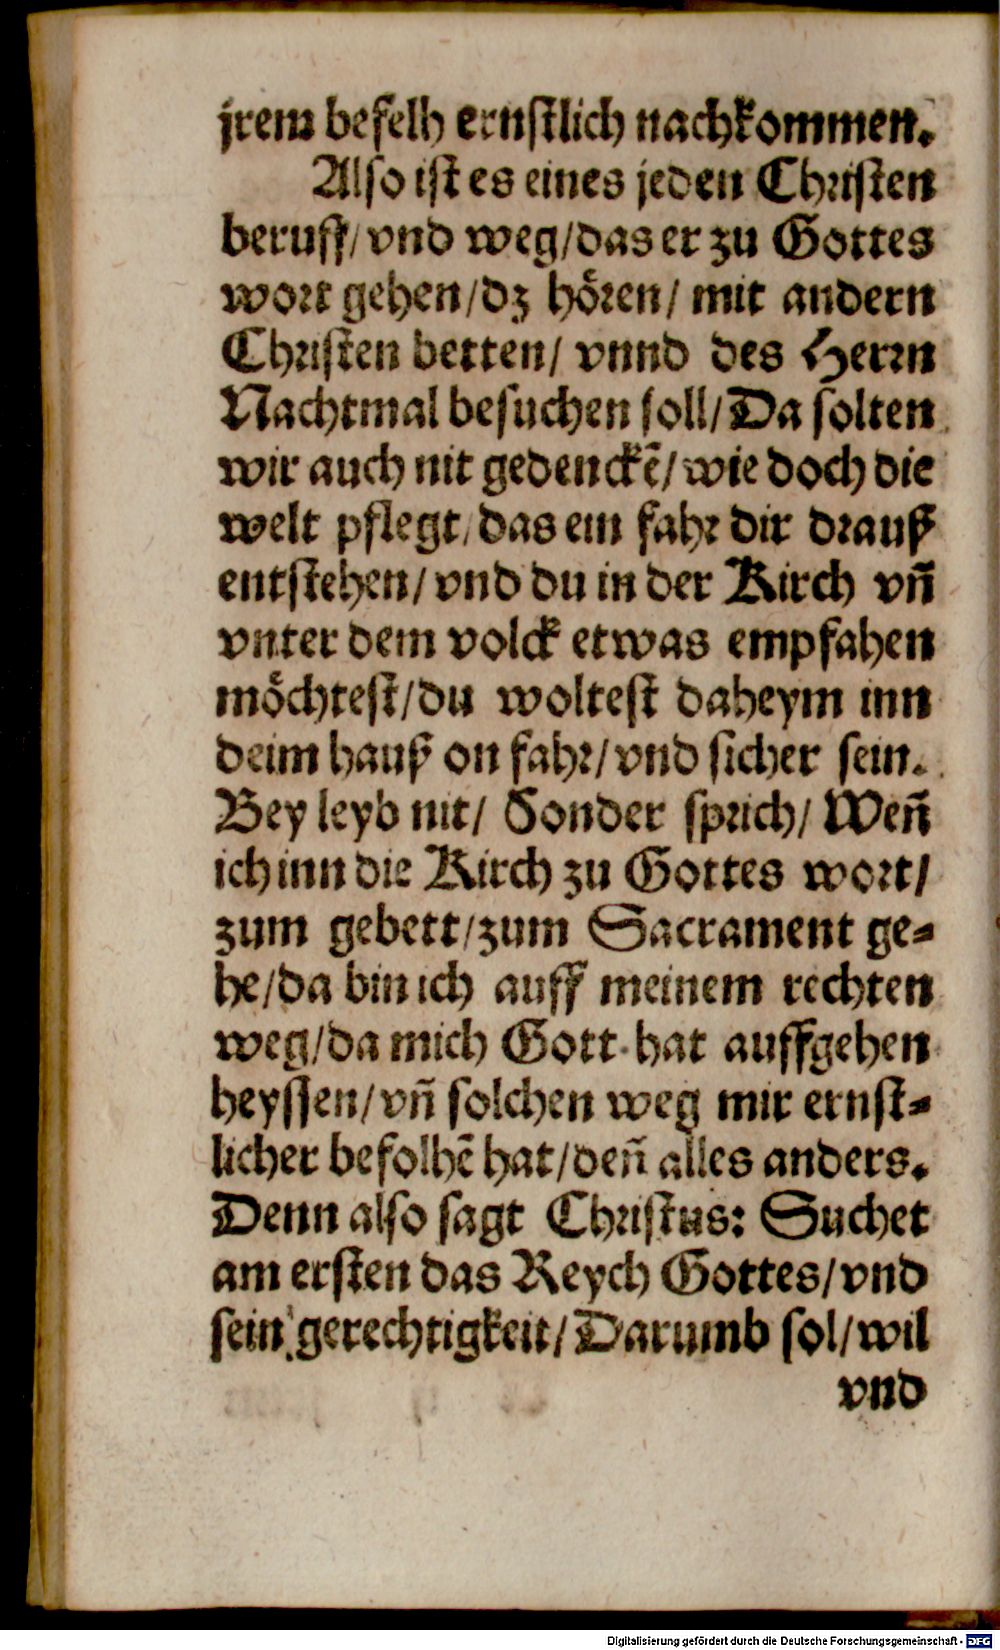 jrem befelh ernstlich nachkommen.
Also ist es eines jeden Christen
beruff/ vnd weg/das er zu Gottes
wort gehen/dz hören/ mit andern
Christen betten/ vnnd des Herrn
Nachtmal besuchen soll/Da solten
wir auch nit gedenckẽ/wie doch die
welt pflegt/das ein fahr dir drauß
entstehen/vnd du in der Kirch vñ
vnter dem volck etwas empfahen
möchtest/du woltest daheym inn
deim hauß on fahr/vnd sicher sein.
Bey leyb nit/ Sonder sprich/ Weñ
ich inn die Kirch zu Gottes wort/
zum gebett/zum Sacrament ge-
he/da bin ich auff meinem rechten
weg/da mich Gott hat auffgehen
heyssen/vñ solchen weg mir ernst-
licher befolhẽ hat/deñ alles anders.
Denn also sagt Christus: Suchet
am ersten das Reych Gottes/vnd
sein gerechtigkeit/Darumb sol/wil
vnd
Digitalisierung gefördert durch die Deutsche Forschungsgemeinschaft - DFG